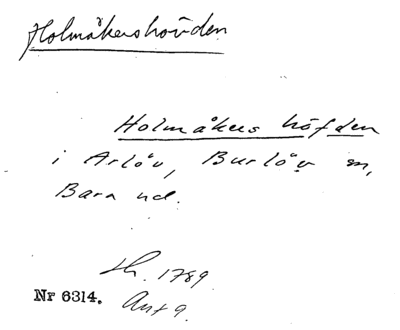 Holmåkershövden
Holmåkers höfden
i Arlöv, Burlöv sn,
Bara hd.
Sk. 1789
Nr 6314. Akt 9.